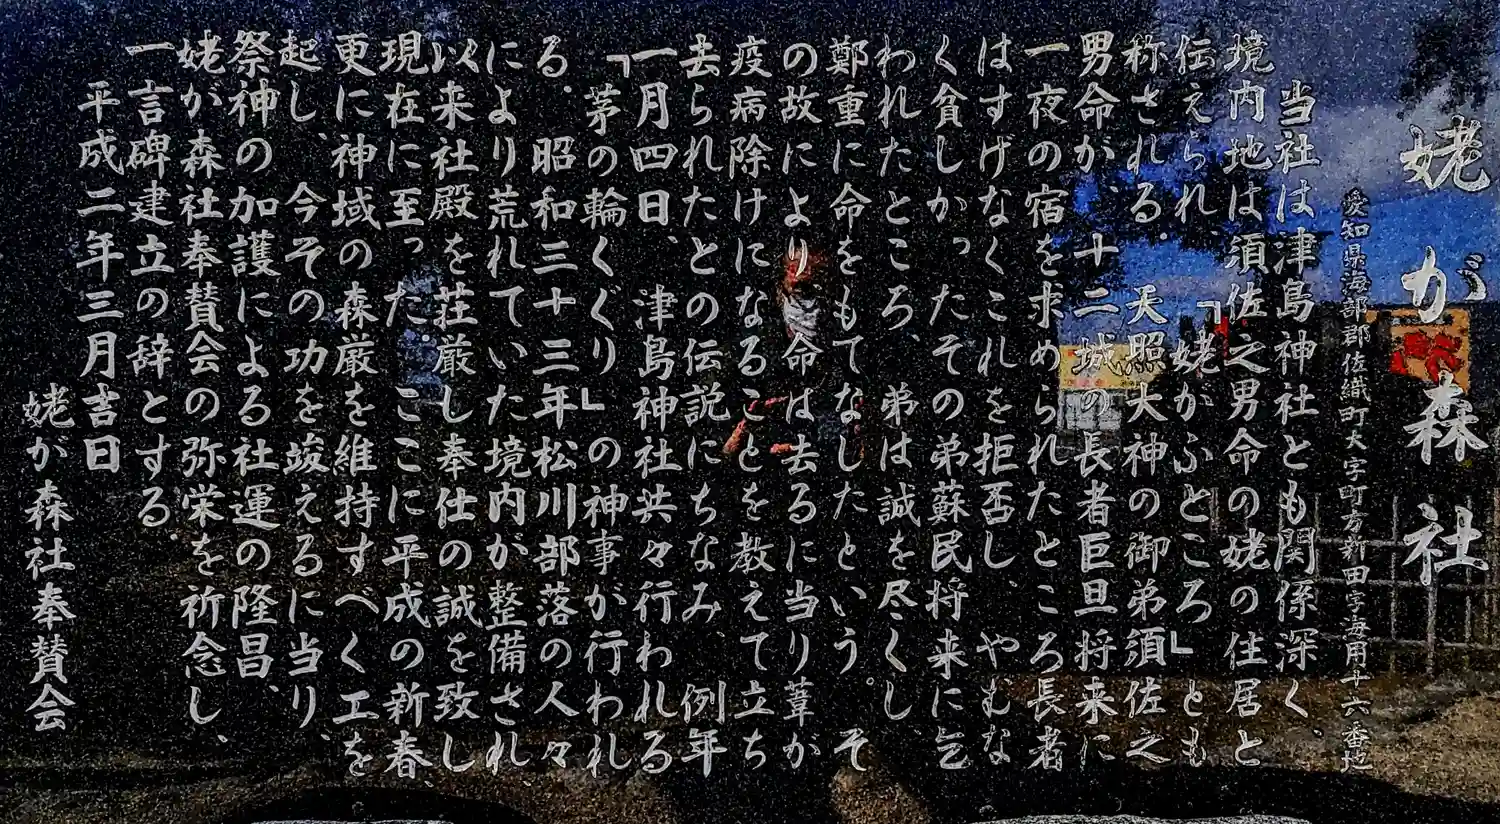 姥が森社
愛知県海部郡佐織町大字町方新田字海用廿六番地
当社は津島神社とも関係深く、
境内地は須佐之男命の姥の住居と
伝えられ、「姥がふところ」とも
称される。天照大神の御弟須佐之
男命が、十二城の長者巨旦将来に
一夜の宿を求められたところ長者
はすげなくこれを拒否し、やむな
く貧しかったその弟蘇民将来に乞
われたところ、弟は誠を尽くし、
鄭重に命をもてなしたという。そ
の故により命は去るに当り葦が
疫病除けになることを教えて立ち
去られたとの伝説にちなみ、例年
一月四日、津島神社共々行われる
「茅の輪くぐり」の神事が行われ
る。昭和三十三年松川部落の人々
により荒れていた境内が整備され、
以来社殿を荘厳し奉仕の誠を致し
現在に至った。ここに平成の新春、
更に神域の森厳を維持すべく工を
起し、今その功を竣えるに当り、
祭神の加護による社運の隆昌、
姥が森社奉賛会の弥栄を祈念し、
一言碑建立の辞とする。
平成二年三月吉日
姥が森社奉賛会